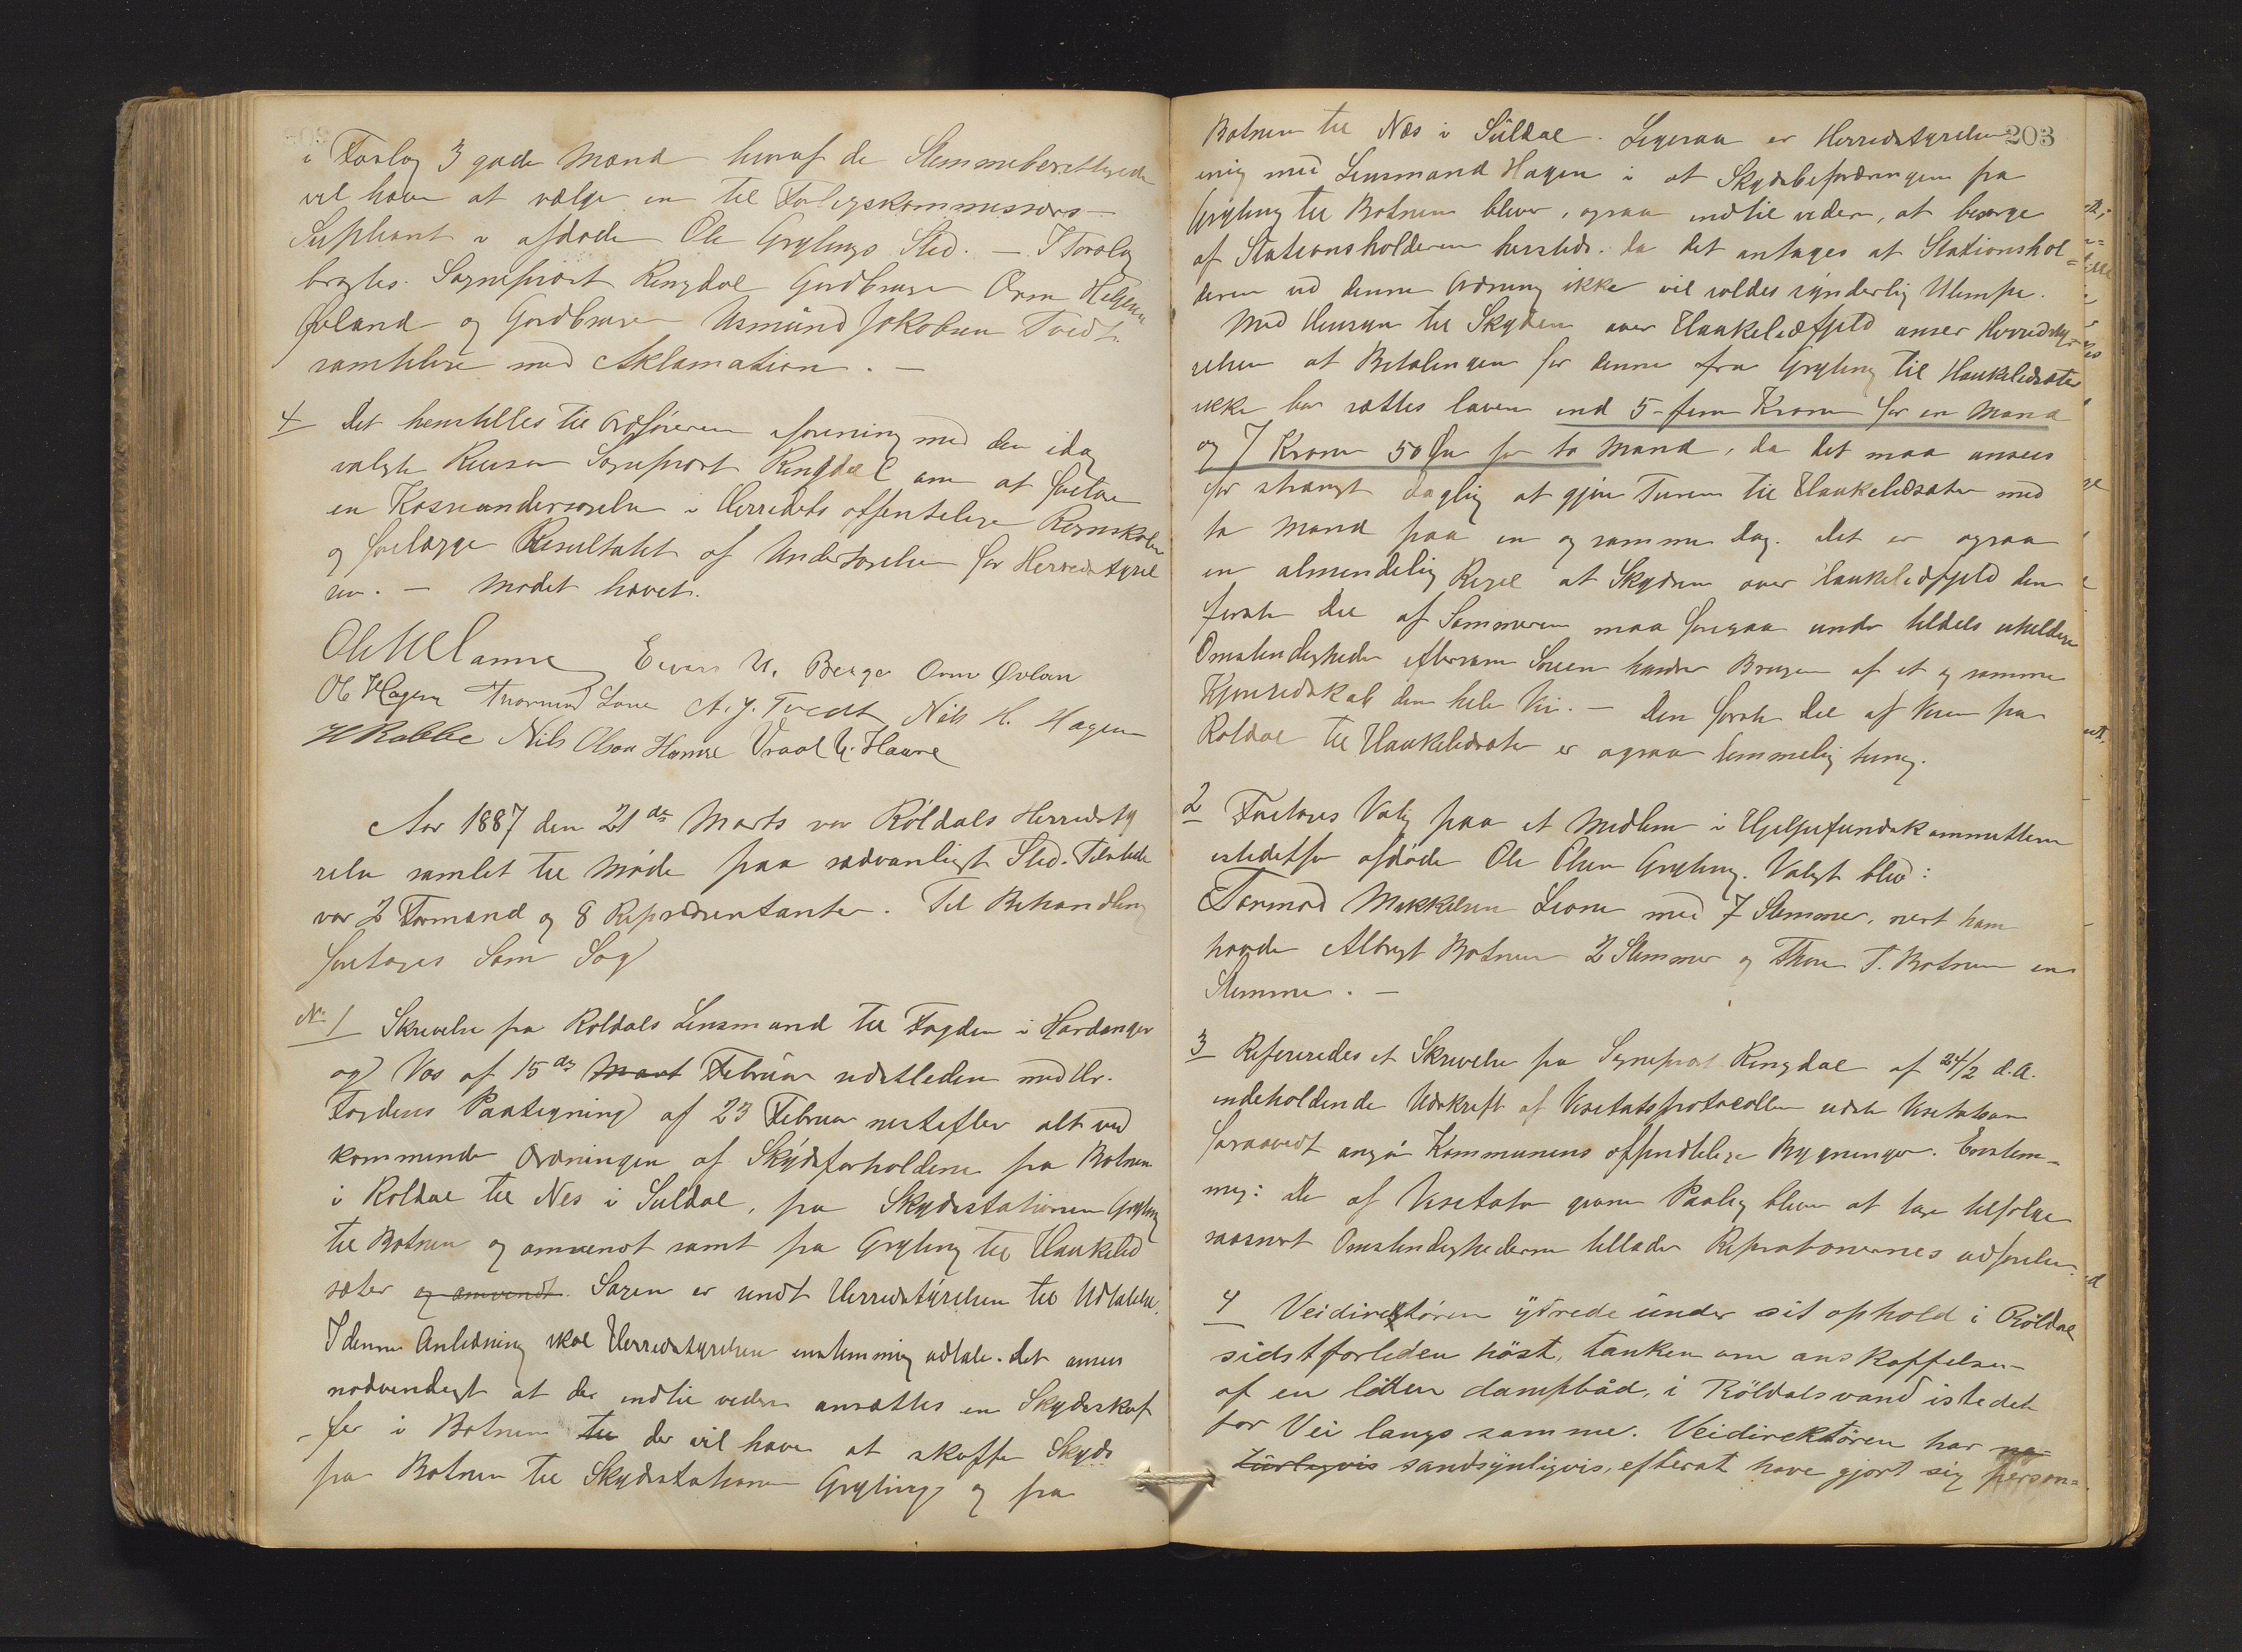 i Forslag 3 gode Mænd hvoraf de Stemmeberettigede
vil have at vælge en til Forligskommissærs-
Supleant i afdøde Ole Grytings Sted. — I Forslag
bragtes Sogneprest Ringdal Gardbruger Orm Helgesen
Øvland og Gardbruger Asmund Jakobsen Tvedt.
samtlige med Aklamation. —
4 Det henstilles til Ordføreren i forening med den idag
valgte Revisor Sogneprest Ringdal om at foretage
en Kasseundersøgelse i Herredets offentelige Regnskaber
og forelægge Resultatet af Undersøgelsen for Herredstyrel
sen. — Mødet hævet.
Ole Hamre Eivin N. Berge Orm Øvlan
Ol Hagen Thormod Lone A. J. Tvedt Nils H. Hagen
H Rabbe Nils Olson Hamre Vraal G. Havre
Aar 1887 den 21de Marts var Röldals Herredsty
relse samlet til Møde paa sædvanligt Sted. Tilstede
var 2 Formænd og 8 Repræsentanter. Til Behandling
foretoges Som Sag
No 1 Skrivelse fra Røldals Lensmand til Fogden i Hardanger
og Vos af 15de Mart Februar sidstleden med Hr.
Fogdens Paategning af 23 Februar nestefter alt ved
kommende Ordningen af Skydsforholdene fra Botnen
i Røldal til Nes i Suldal, fra Skydsstationen Gryting
til Botnen og omvendt samt fra Gryting til Haukelid
sæter og omvendt. Sagen er sendt Herredstyrelsen til Udtalelse.
I denne Anledning skal Herredstyrelsen enstemmig udtale. Det ansees
nødvendigt at der indtil videre ansættes en Skydsskaf
-fer i Botnen til der vil have at skaffe Skyds
fra Botnen til Skydsstationen Gryting og fra
203
Botnen til Næs i Suldal. Ligesaa er Herredstyrelsen
enig med Lensmand Hagen i at Skydsbefordringen fra
Gryting til Botnen bliver, ogsaa indtil videre, at besørge
af Stationsholderen hersteds. da det antages at Stationshol=
deren ved denne Ordning ikke vil voldes synderlig Ulempe.
Med Hensyn til Skydsen over Haukelidfjeld anser Herredsty=
relsen at Betalingen for denne fra Gryting til Haukelidsæter
ikke bør sættes lavere end 5- fem Kroner for en Mand
og 7 Kroner 50 Øre for to Mand, da det maa ansees
for strængt daglig at gjøre Turen til Haukelidsæter med
to Mand paa en og samme dag. det er ogsaa
en almindelig Regel at Skydsen over Haukelidfjeld den
første Del af Sommeren maa foregaa under tildels uheldige
Omstendigheder eftersom Sneen hindrer Brugen af et og samme
Kjøreredskab den hele Vei. — Den første del af Veien fra
Røldal til Haukelidsæter er ogsaa temmelig tung.
2 Foretoges Valg paa et Medlem i Hjelpefundskommitteen
istedetfor afdøde Ole Olsen Gryting. Valgt blev:
Tormod Mikkelsen Lone med 7 Stemmer, nest ham
havde Albregt Botnen 2 Stemmer og Thore T. Botnen en
Stemme. —
3 Refereredes et Skrivelse fra Sogneprest Ringdal af 24/2 d.A.
indeholdende Udskrift af Visitatsprotocollen sidste Visitatsen
foraavidt angår Kommunens offentelige Bygninger. Enstem-
mig: De af Visitator givne Paalæg bliver at tage tilfølge
saasnart Omstendighederne tillader Reparationernes udførelse.
4 Veidirektören ytrede under sit ophold i Röldal
sidstforleden höst, tanken om anskaffelsen
af en liden dampbåd, i Röldalsvand istedet
for Vei langs samme. Veidirektören har na-
turligvis sandsynligvis, efterat have gjort sig person=